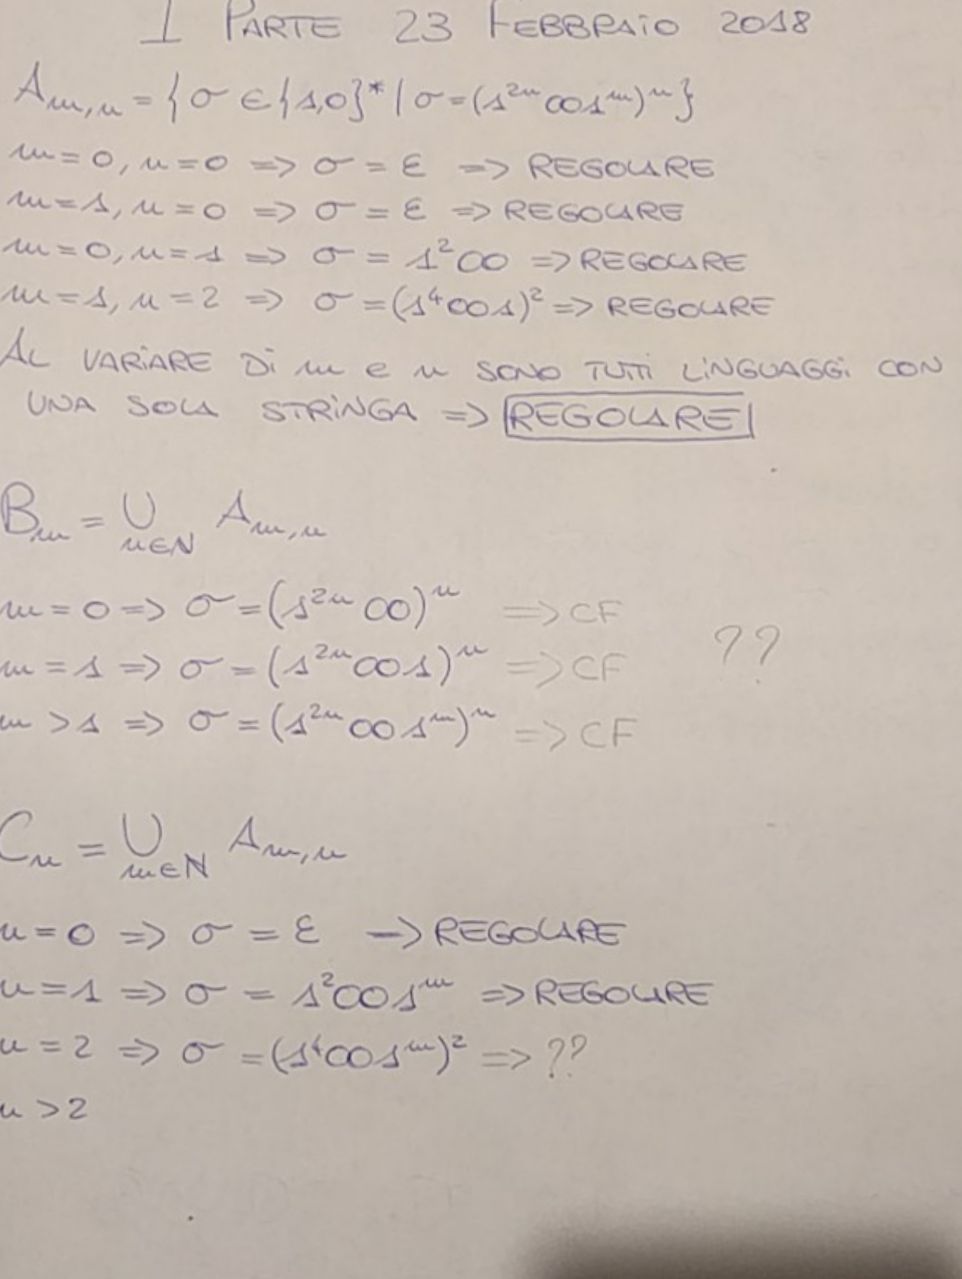 I PARTE 23 FEBBRAIO 2018
Am,n = {σ ∈ {1,0}* | σ = (1²ⁿ001ᵐ)ⁿ}
m=0, n=0 => σ = ε => REGOLARE
m=1, n=0 => σ = ε => REGOLARE
m=0, n=1 => σ = 1²00 => REGOLARE
m=1, n=2 => σ = (1⁴001)² => REGOLARE
AL VARIARE DI m e n SONO TUTTI LINGUAGGI CON
UNA SOLA STRINGA => REGOLARE
Bm = ∪ n∈N Am,n
m=0 => σ = (1²ⁿ00)ⁿ => CF
m=1 => σ = (1²ⁿ001)ⁿ => CF ??
m>1 => σ = (1²ⁿ001ᵐ)ⁿ => CF
Cn = ∪ m∈N Am,n
n=0 => σ = ε -> REGOLARE
n=1 => σ = 1²001ᵐ => REGOLARE
n=2 => σ = (1⁴001ᵐ)² => ??
n>2